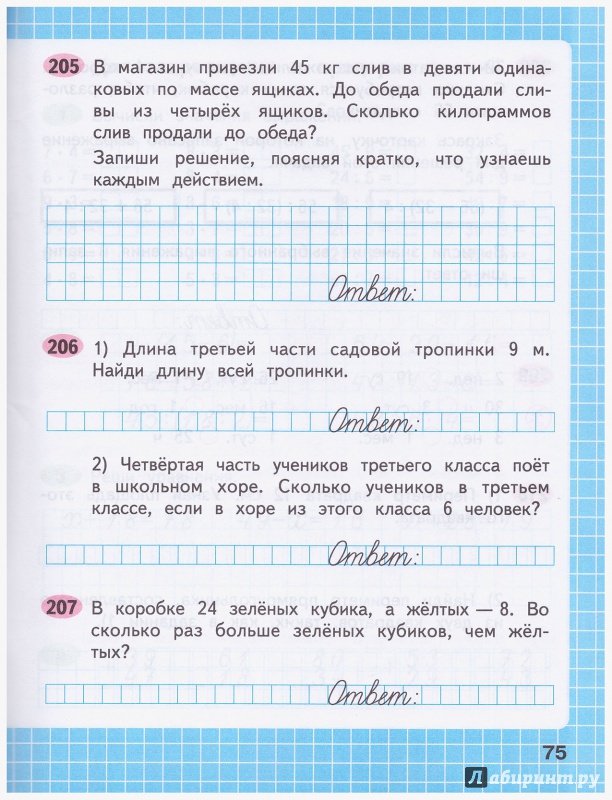 205 В магазин привезли 45 кг слив в девяти одина-
ковых по массе ящиках. До обеда продали сли-
вы из четырёх ящиков. Сколько килограммов
слив продали до обеда?
Запиши решение, поясняя кратко, что узнаешь
каждым действием.
Ответ:
206 1) Длина третьей части садовой тропинки 9 м.
Найди длину всей тропинки.
Ответ:
2) Четвёртая часть учеников третьего класса поёт
в школьном хоре. Сколько учеников в третьем
классе, если в хоре из этого класса 6 человек?
Ответ:
207 В коробке 24 зелёных кубика, а жёлтых — 8. Во
сколько раз больше зелёных кубиков, чем жёл-
тых?
Ответ:
75
Лабиринт.ру